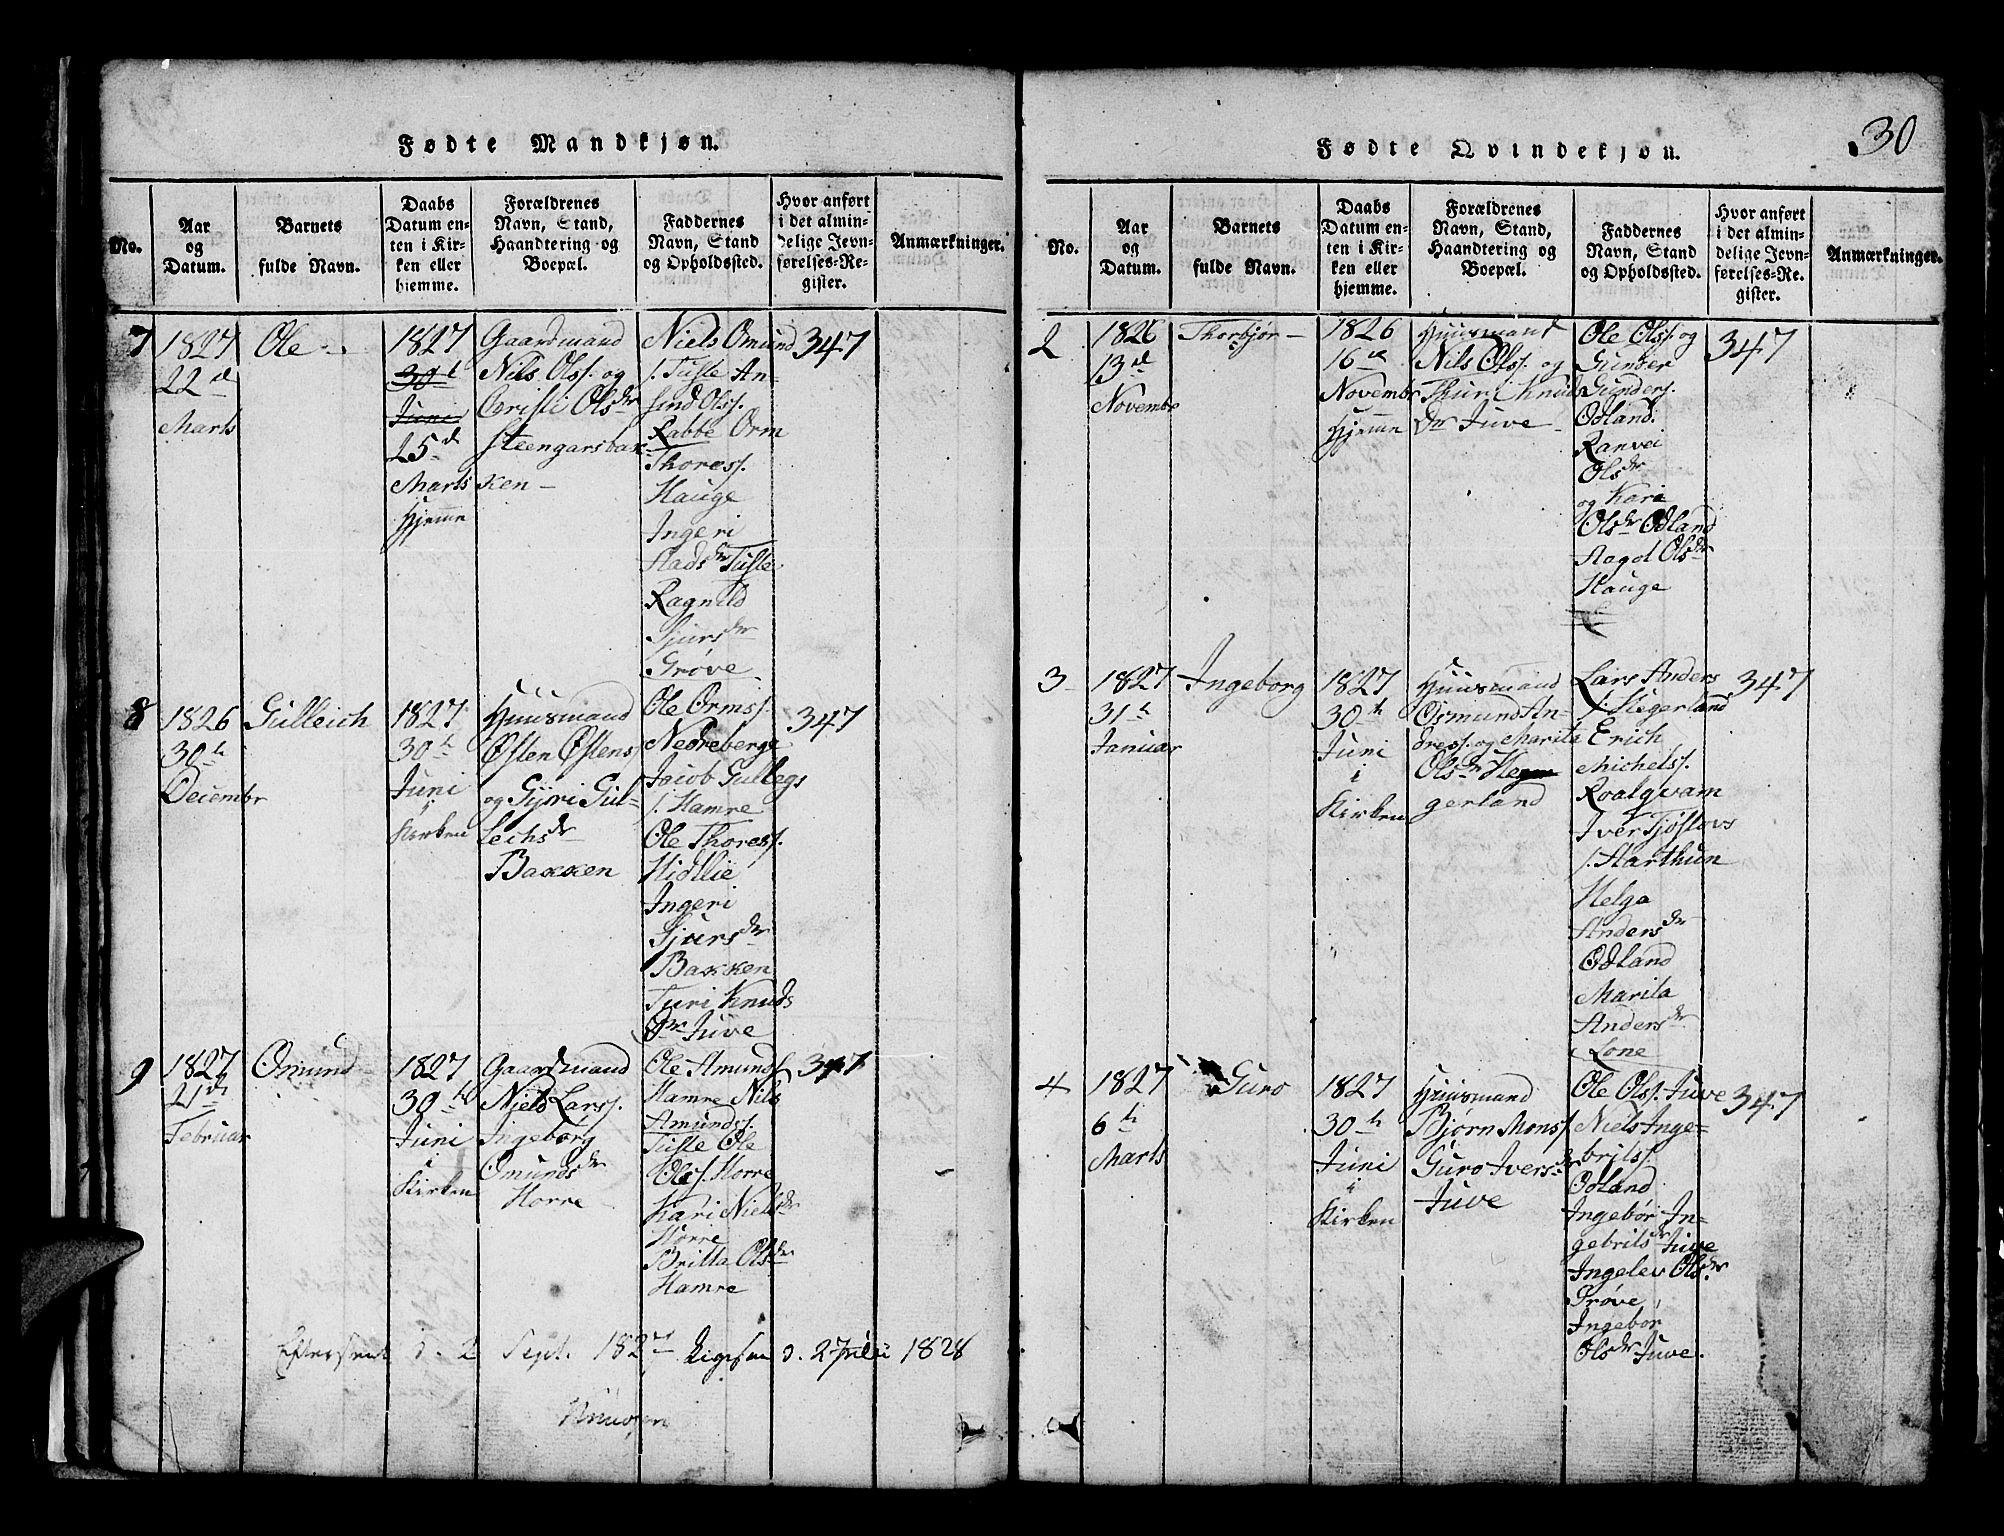 Fødte Mandkjøn.
No.
Aar
og
Datum.
Barnets
fulde Navn.
Daabs
Datum en-
ten i Kir-
ken eller
hjemme.
Forældrenes
Navn, Stand,
Haandtering og
Boepæl.
Faddernes
Navn, Stand
og Opholdssted.
Hvor anført
i det almin-
delige Jevn-
førelses-Re-
gister.
Anmærkninger.
7
1827
22de
Marts
Ole
1827
30t
Juni
25d
Marts
Hjemme
Gaardmand
Nils Olss. og
Christi Olsdr
Steengarsbak-
ken
Niels Omund
s. Tufte An-
Olss.
Rabbe Orm
Thoress.
Hauge
Ingeri
Aadsdr Tufte
Ragnild
Sjursdr
Grøve
347
8
1826
30th
Decembr
Gulleich
1827
30th
Juni
i
Kirken
Huusmand
Østen Østens
og Gjøri Gul-
lechsdr
Bakken
Ole Ormss.
Nedreberge
Jacob Gullegs
s. Hamre
Ole Thoress.
Hidllie
Ingeri
Sjursdr
Bakken
Turi Knuds
Dr Juve
347
9
1827
21de
Februar
Omund
1827
30th
Juni
i
Kirken
Gaardmand
Niels Larss.
Ingeborg
Omundsdr
Horre
Ole Amunds
Hamre Nils
Amundss.
Tufte Ole
Olss. Horre
Kari Nielsdr
Horre
Britta Olsdr
Hamre
347
Efterseet d. 2 Sept. 1827 Ligesaa d. 2 Julii 1828
Knudsen
30
Fødte Qvindekjøn.
No.
Aar
og
Datum.
Barnets
fulde Navn.
Daabs
Datum en-
ten i Kir-
ken eller
hjemme.
Forældrenes
Navn, Stand,
Haandtering og
Boepæl.
Faddernes
Navn, Stand
og Opholdssted.
Hvor anført
i det almin-
delige Jevn-
førelses-Re-
gister.
Anmærkninger.
2
1826
13d
Novembr
Thorbjør
1826
16d
Novembr
Hjemme
Huusmand
Nils Olss. og
Thuri Knuds
Dr Juve
Ole Olss. og
Gunder
Gunders.
Odland.
Ranvei
Olsdr
og Kari
Olsdr Odland
Aagot Olsdr
Hauge
347
3
1827
31th
Januar
Ingeborg
1827
30th
Juni
i
Kirken
Huusmand
Osmund An-
dress. og Marita
Olsdr Heger
gerland
Lars Anders
s. Hegerland
Erich
Michelss.
Roalqvam
Iver Tjøstovs
s. Harthun
Helga
Andersdr
Odland
Marita
Andersdr
Lone
347
4
1827
6th
Marts
Guro
1827
30th
Juni
i
Kirken
Huusmand
Bjørn Monss.
Guro Iversdr
Juve
Ole Olss. Juve
Niels Inge-
britss.
Odland
Ingebor In-
gebritsdr Juve
Ingelev Olsdr.
Grøve
Ingebor
Olsdr Juve.
347